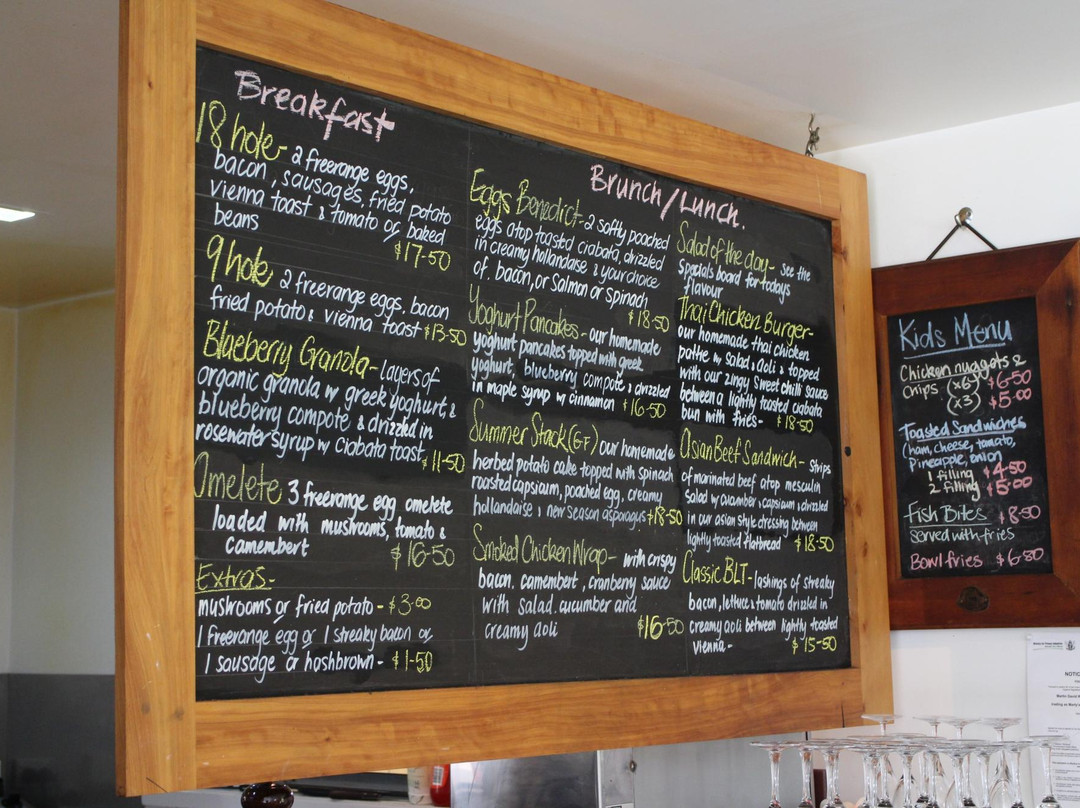 Breakfast
18 hole - 2 freerange eggs,
bacon, sausages, fried potato
vienna toast & tomato or baked
beans
$17-50
9 hole 2 freerange eggs, bacon
fried potato & vienna toast $13-50
Blueberry Granola - layers of
organic granola w greek yoghurt &
blueberry compote & drizzled in
rosewater syrup w ciabata toast
$11-50
Omelete 3 freerange egg omelete
loaded with mushrooms, tomato &
camembert $16-50
Extras -
mushrooms or fried potato - $3-00
1 freerange egg or 1 streaky bacon or
1 sausage or hashbrown - $1-50
Brunch/Lunch.
Eggs Benedict - 2 softly poached
eggs atop toasted ciabata, drizzled
in creamy hollandaise & your choice
of bacon, or salmon or spinach
$18-50
Yoghurt Pancakes - our homemade
yoghurt pancakes topped with greek
yoghurt, blueberry compote & drizzled
in maple syrup w cinnamon $16-50
Summer Stack (GF) our homemade
herbed potato cake topped with spinach
roasted capsium, poached egg, creamy
hollandaise & new season asparagus $18-50
Smoked Chicken Wrap - with crispy
bacon, camembert, cranberry sauce
with salad, cucumber and
creamy aoli $16-50
Salad of the day - See the
Specials board for todays
flavour
Thai Chicken Burger -
our homemade thai chicken
pattie w salad, aoli & topped
with our zingy sweet chilli sauce
between a lightly toasted ciabata
bun with fries - $18-50
Asian Beef Sandwich - Strips
of marinated beef atop mesculin
salad w cucumber, capsium & drizzled
in our asian style dressing between
lightly toasted flatbread $18-50
Classic BLT - lashings of streaky
bacon, lettuce & tomato drizzled in
creamy aoli between lightly toasted
vienna - $15-50
Kids Menu
Chicken nuggets &
chips (x6) $6-50
(x3) $5-00
Toasted Sandwiches
(ham, cheese, tomato,
Pineapple, onion
1 filling $4-50
2 filling $5-00
Fish Bites $8-50
served with fries
Bowl fries $6-80